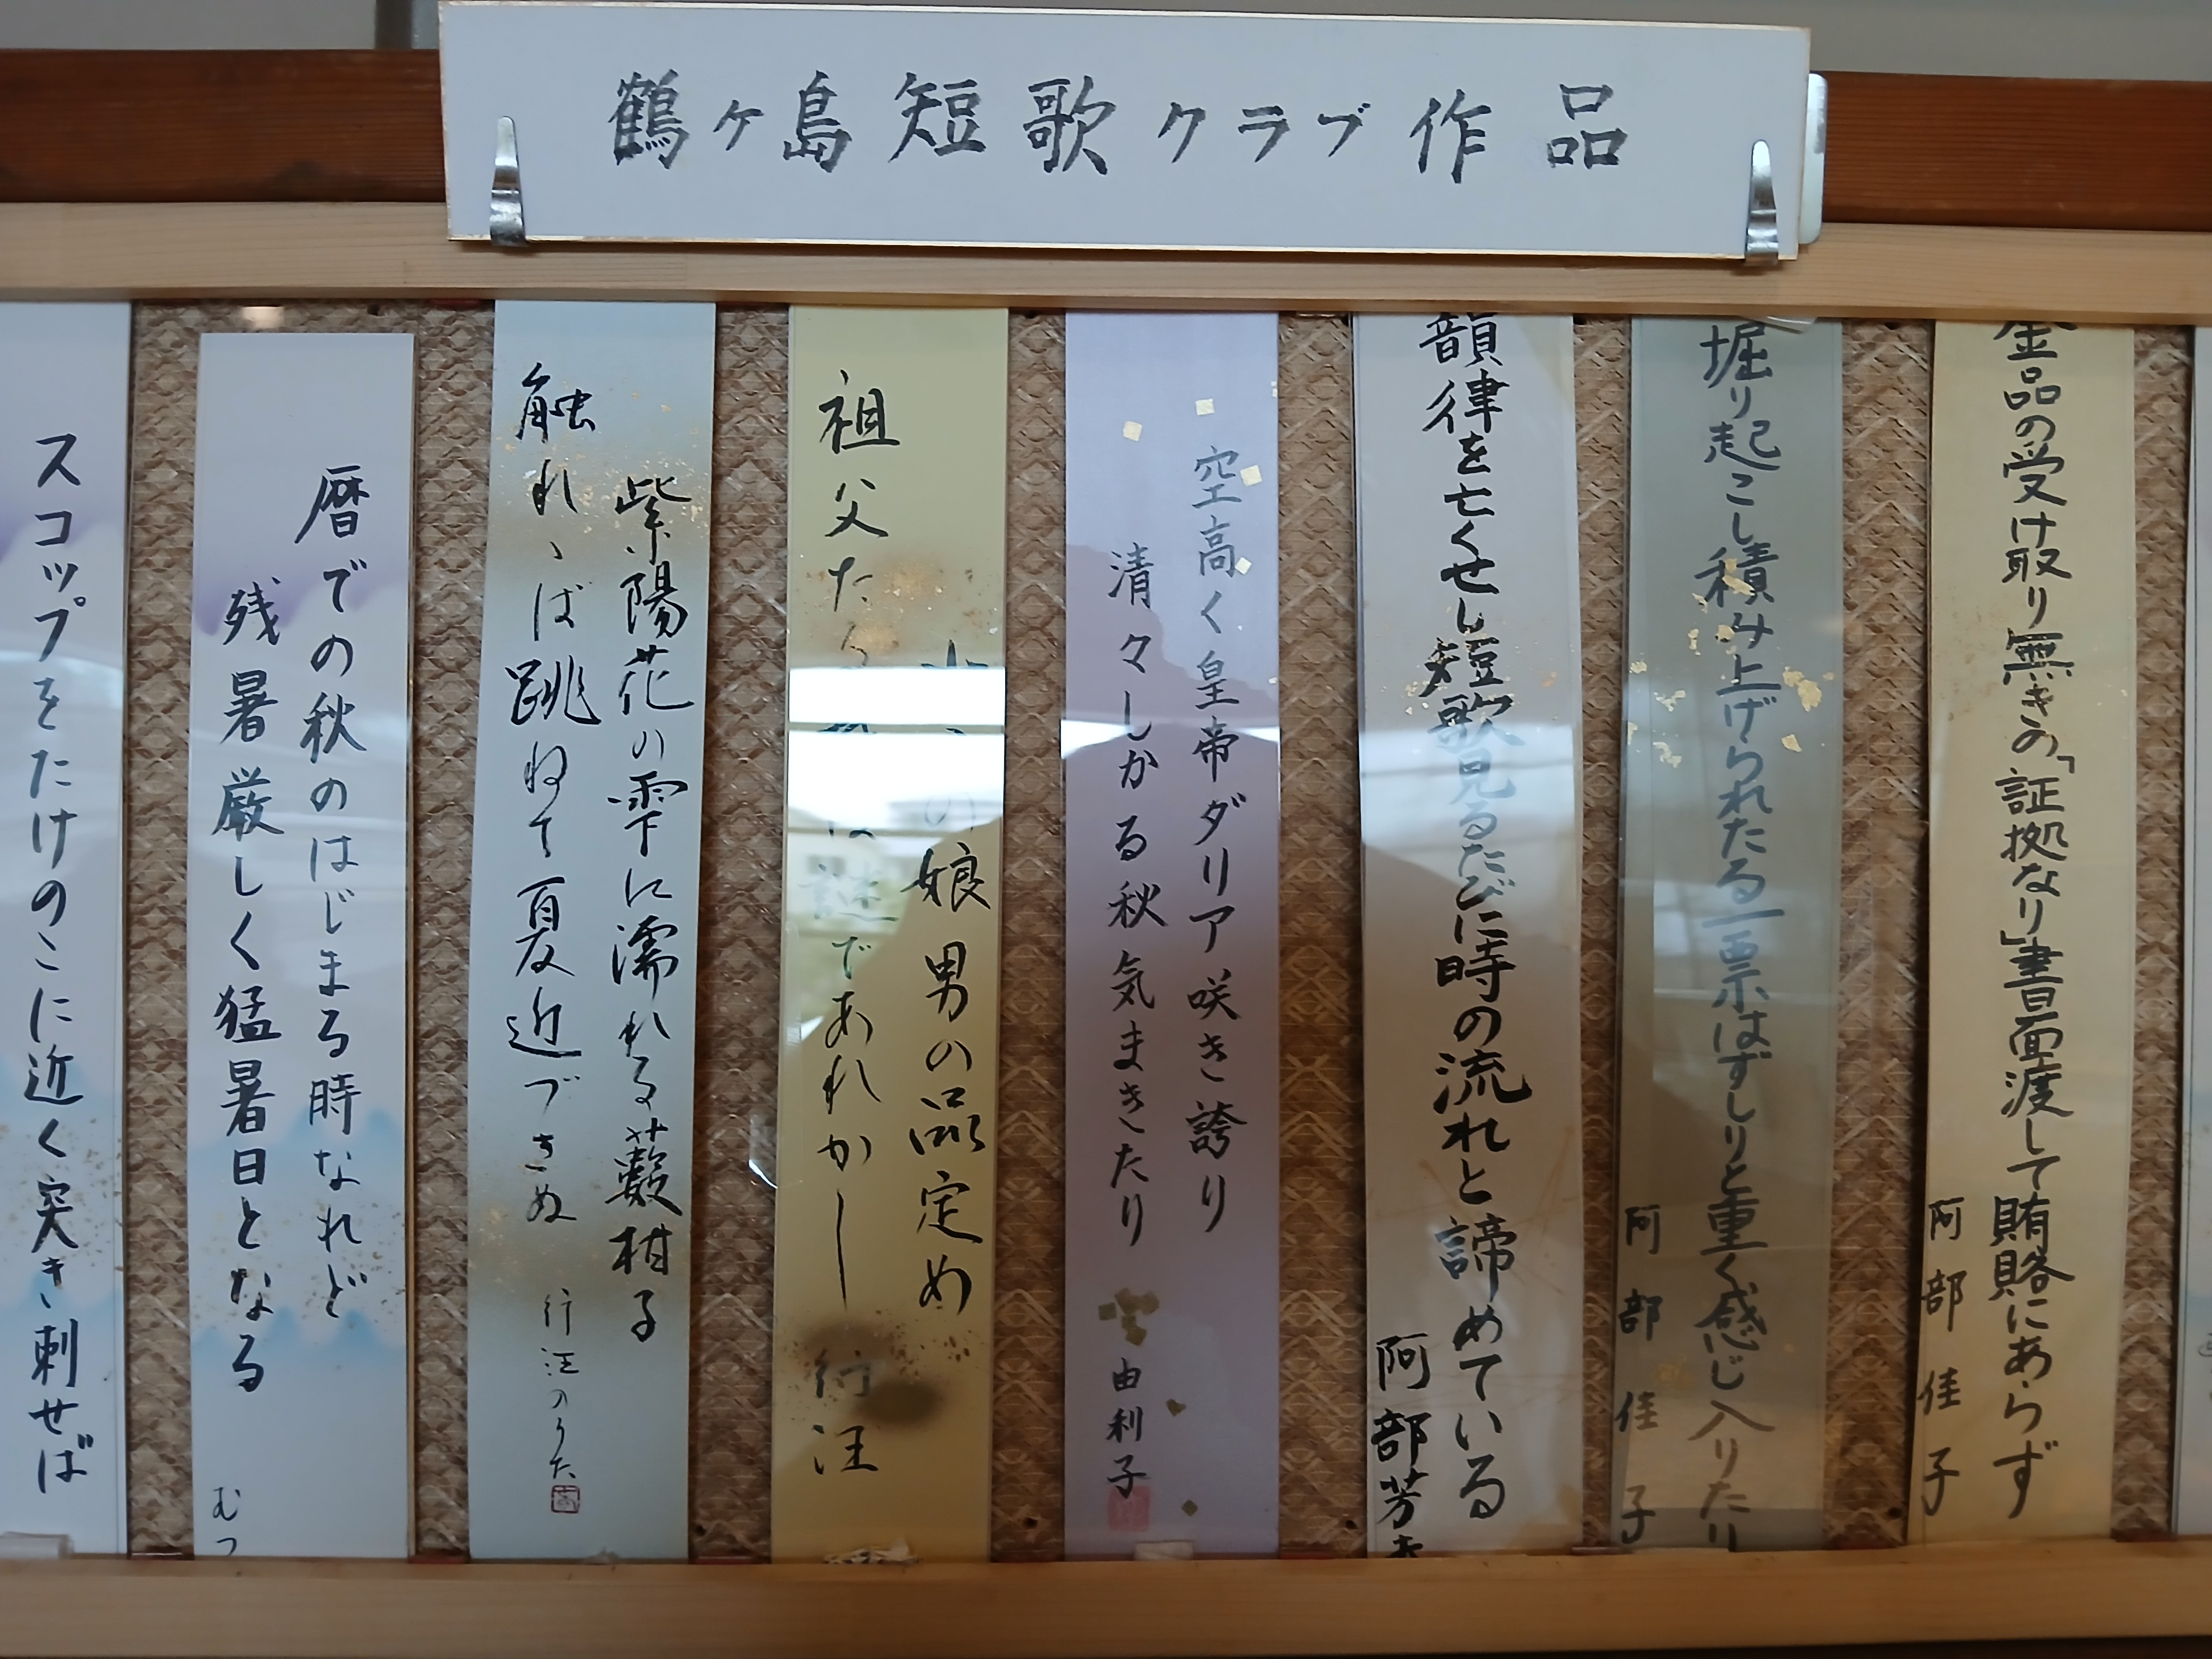 鶴ヶ島短歌クラブ作品
金品の受け取り無きの「証拠なり」書面渡して賄賂にあらず
阿部佳子
堀り起こし積み上げられたる一票はずしりと重く感じ入りたり
阿部佳子
韻律を亡くせし短歌見るたびに時の流れと諦めている
阿部芳
空高く皇帝ダリア咲き誇り
清々しかる秋気まきたり
由利子
の娘男の品定め
祖父た
は謎であれかし
行汪
紫陽花の雫に濡れる藪柑子
触れゝば跳ねて夏近づきぬ
行汪のうた
暦での秋のはじまる時なれど
残暑厳しく猛暑日となる
むつ
スコップをたけのこに近く突き刺せば